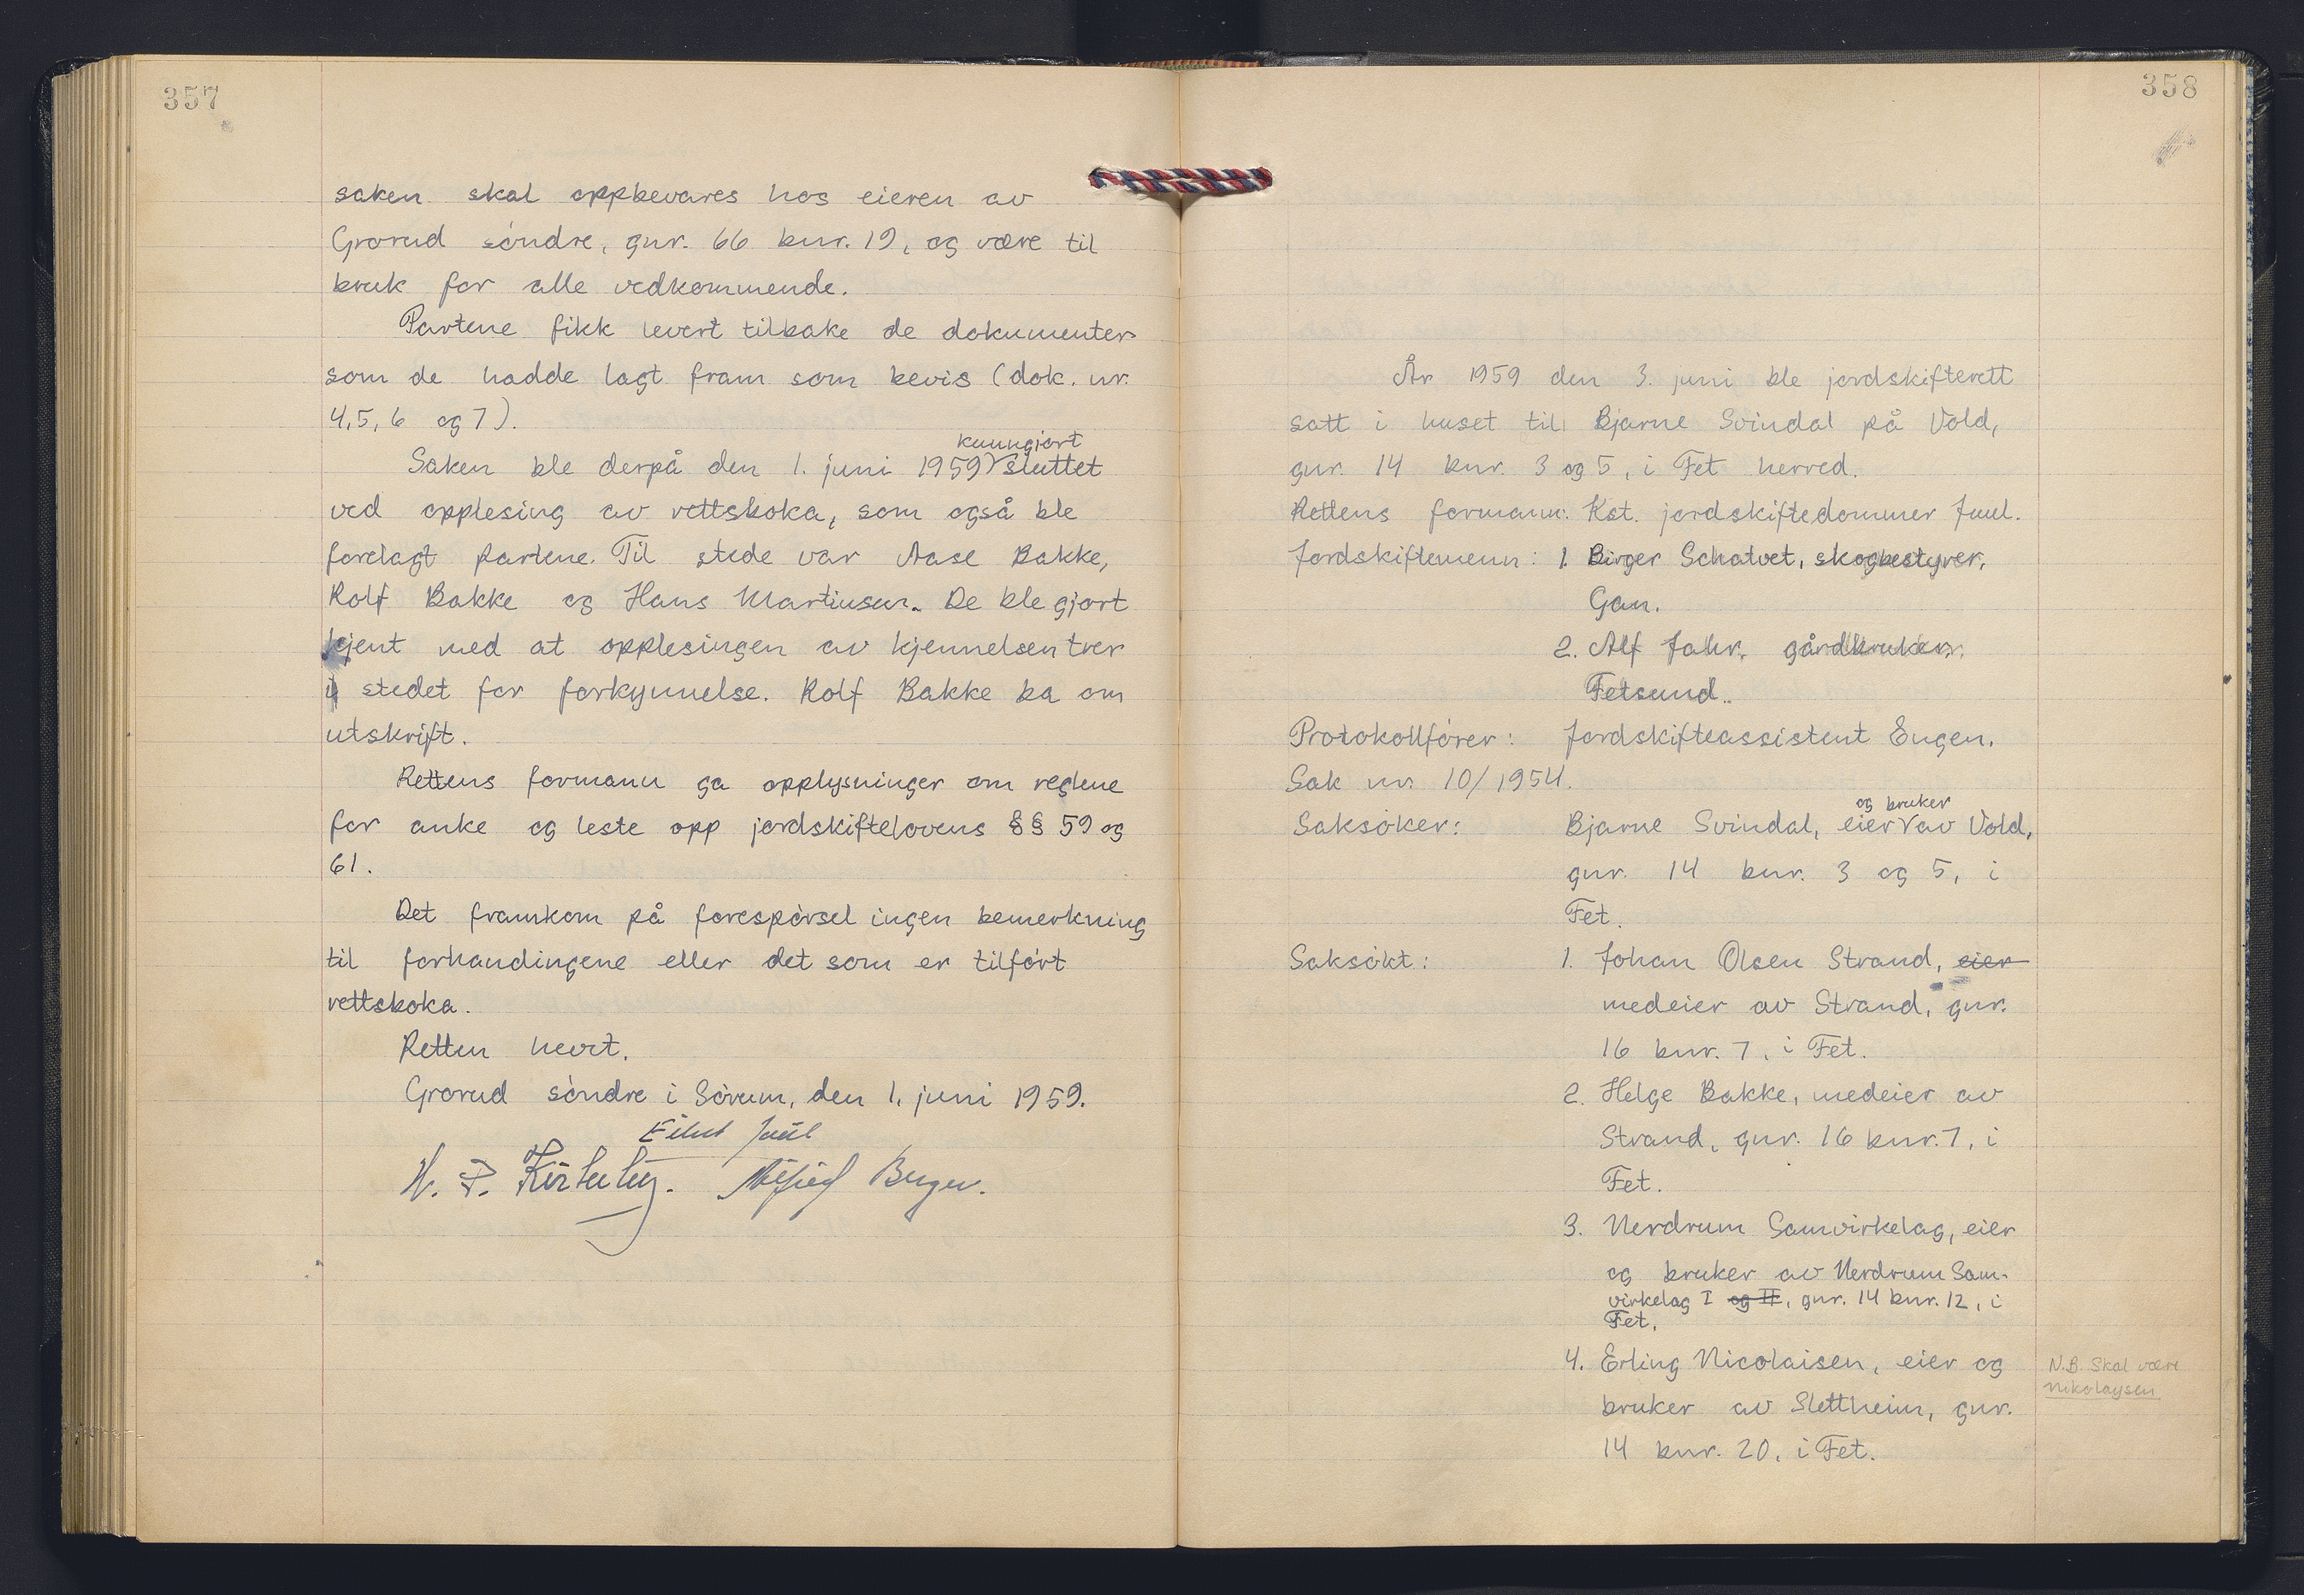 357
saken skal oppbevares hos eieren av
Grorud söndre, gnr. 66 bnr. 19, og være til
bruk for alle vedkommende.
Partene fikk levert tilbake de dokumenter
som de hadde lagt fram som bevis (dok. nr.
4, 5, 6 og 7).
kunngjort
Saken ble derpå den 1. juni 1959 sluttet
ved opplesing av rettsboka, som også ble
forelagt partene. Til stede var Aase Bakke,
Rolf Bakke og Hans Martinsen. De ble gjort
kjent med at opplesingen av kjennelsen trer
i stedet for forkynnelse. Rolf Bakke ba om
utskrift.
Rettens formann ga opplysninger om reglene
for anke og leste opp jordskiftelovens §§ 59 og
61.
Det framkom på forespörsel ingen bemerkning
til forhandingene eller det som er tilfört
rettsboka.
Retten hevet.
Grorud söndre i Sörum, den 1. juni 1959.
Juul
358
År 1959 den 3. juni ble jordskifterett
satt i huset til Bjarne Svindal på Vold,
gnr. 14 bnr. 3 og 5, i Fet herred.
Rettens formann: Kst. jordskiftedommer Juul.
Jordskiftemenn: 1. Birger Schatvet, skogbestyrer,
Gan.
2. Alf Jahr, gårdbruker,
Fetsund.
Protokollförer: Jordskifteassistent Engen.
Sak nr. 10/1954.
og bruker
Saksöker: Bjarne Svindal, eier av Vold,
gnr. 14 bnr. 3 og 5, i
Fet.
Saksökt: 1. Johan Olsen Strand, eier
medeier av Strand, gnr.
16 bnr. 7, i Fet.
2. Helge Bakke, medeier av
Strand, gnr. 16 bnr. 7, i
Fet.
3. Nerdrum Samvirkelag, eier
og bruker av Nerdrum Sam-
virkelag I og II, gnr. 14 bnr. 12, i
Fet.
4. Erling Nicolaisen, eier og
bruker av Slettheim, gnr.
14 bnr. 20, i Fet.
N.B. Skal være
Nikolaysen